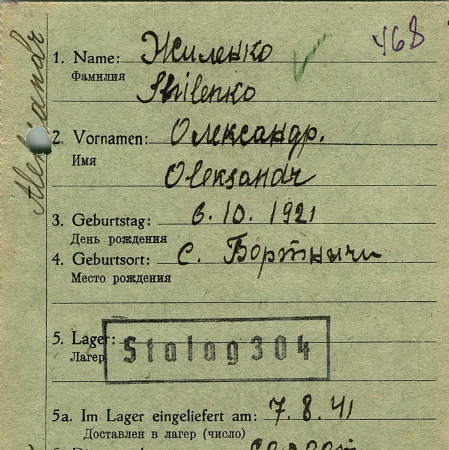 Aleksandr
468
1. Name: Жиленко
Фамилия
Shilenko
2. Vornamen: Олександр.
Имя
Oleksandr
3. Geburtstag: 6.10.1921
День рождения
4. Geburtsort: С. Бортничи
Место рождения
5. Lager: Stalag 304
Лагер
5a. Im Lager eingeliefert am: 7.8.41
Доставлен в лагер (число)